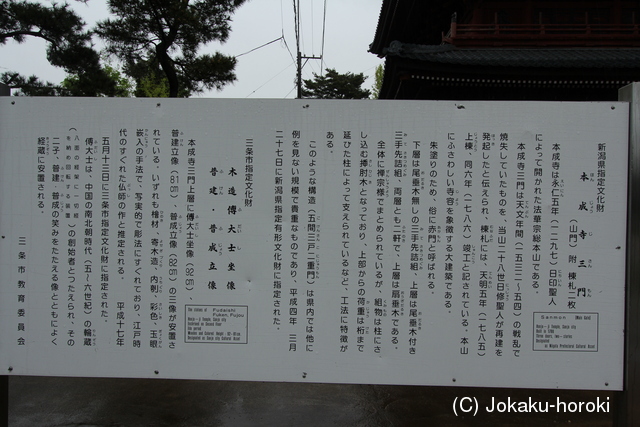 新潟県指定文化財
本成寺三門
(山門) 附 棟札二枚
本成寺は永仁五年(一二九七)日印聖人
によって開かれた法華宗総本山である。
本成寺三門は天文年間(一五三二〜五四)の戦乱で
焼失していたものを、当山二十八世日修聖人が再建を
発起したと伝えられ、棟札には、天明五年(一七八五)
上棟、同六年(一七八六)竣工と記されている。本山
にふさわしい寺容を象徴する大建築である。
朱塗りのため、俗に赤門と呼ばれる。
下層は尾垂木無しの三手先詰組、上層は尾垂木付き
三手先詰組、両層とも二軒で、上層は扇垂木である。
全体に禅宗様でまとめられているが、組物は柱にさ
し込む挿肘木となっており、上部からの荷重は桁まで
延びた柱によって支えられているなど、工法に特徴が
ある。
このような構造(五間三戸二重門)は県内では他に
例を見ない規模で貴重なものであり、平成四年 三月
二十七日に新潟県指定有形文化財に指定された。
三条市指定文化財
木造傅大士坐像
普建・普成立像
本成寺三門上層に傅大士坐像(92㎝)、
普建立像(81㎝)、普成立像(82㎝)の三像が安置さ
れている。いずれも檜材、寄木造、内刳、彩色、玉眼
嵌入の手法で、写実的で彫法にすぐれており、江戸時
代のすぐれた仏師の作と推定される。 平成十七年
五月十三日に三条市指定文化財に指定された。
傅大士は、中国の南北朝時代(五/六世紀)の輪蔵
の創始者とつたえられ、その
二子、普建・普成の笑みをたたえる像とともによく
経蔵に安置される。
三条市教育委員会
(C) Jokaku-horoki